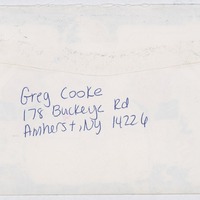 Greg Cooke
178 Buckeye Rd
Amherst, Ny 14226